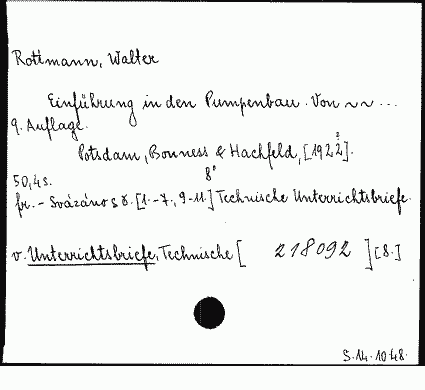 Rottmann, Walter
Einführung in den Pumpenbau. Von ~~ ...
9. Auflage.
Potsdam, Bonness & Hachfeld, [192?].
8°
50,4 s.
fr. - Svázáno s č. [1.-7., 9-11.] Technische Unterrichtsbriefe.
v. Unterrichtsbriefe, Technische [ 218092 ] [8.]
S.14.1048.